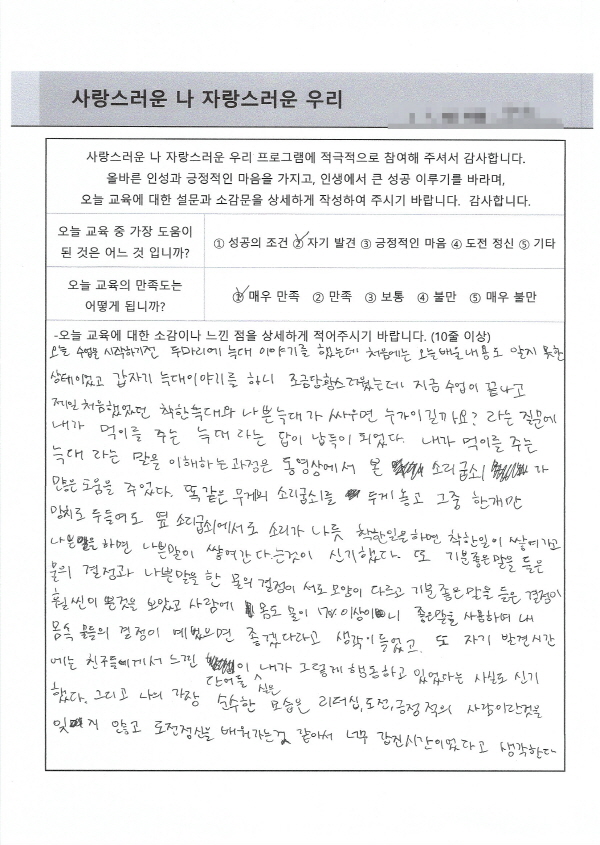 사랑스러운 나 자랑스러운 우리
사랑스러운 나 자랑스러운 우리 프로그램에 적극적으로 참여해 주셔서 감사합니다.
올바른 인성과 긍정적인 마음을 가지고, 인생에서 큰 성공 이루기를 바라며,
오늘 교육에 대한 설문과 소감문을 상세하게 작성하여 주시기 바랍니다. 감사합니다.
오늘 교육 중 가장 도움이
된 것은 어느 것 입니까?
① 성공의 조건 ② 자기 발견 ③ 긍정적인 마음 ④ 도전 정신 ⑤ 기타
오늘 교육의 만족도는
어떻게 됩니까?
① 매우 만족 ② 만족 ③ 보통 ④ 불만 ⑤ 매우 불만
-오늘 교육에 대한 소감이나 느낀 점을 상세하게 적어주시기 바랍니다. (10줄 이상)
오늘 수업을 시작하기전 두마리에 늑대 이야기를 했는데 처음에는 오늘배울내용도 알지 못한
상태이었고 갑자기 늑대이야기를 하니 조금당황스러웠는데 지금 수업이 끝나고
제일처음했었던 착한늑대와 나쁜늑대가 싸우면 누가이길까요? 라는 질문에
내가 먹이를 주는 늑대 라는 답이 납득이 되었다. 내가 먹이를 주는
늑대 라는 말을 이해하는과정은 동영상에서 본 소리굽쇠 가
많은 도움을 주었다. 똑같은 무게의 소리굽쇠를 두개 놓고 그중 한개만
망치로 두들여도 옆 소리굽쇠에서도 소리가 나듯 착한일을하면 착한일이 쌓여가고
나쁜말을 하면 나쁜말이 쌓여간다는것이 신기했다. 또 기분좋은말을 들은
물의 결정과 나쁜말을 한 물의결정이 서로 모양이 다르고 기분좋은말을 들은 결정이
훨씬이쁜것을 보았고 사람에 몸도 물이 이상이니 좋은말을 사용하며 내
몸속 물들의 결정이 예뻤으면 좋겠다라고 생각이들었고. 또 자기 발견시간
에는 친구들에게서 느낀 단어들이 내가 그렇게 행동하고 있었다는 사실도 신기
했다. 그리고 나의 가장 순수한 모습은 리더십,도전,긍정적의 사람이란것을
잊지 않고 도전정신을 배워가는것 같아서 너무 값진시간이었다고 생각한다